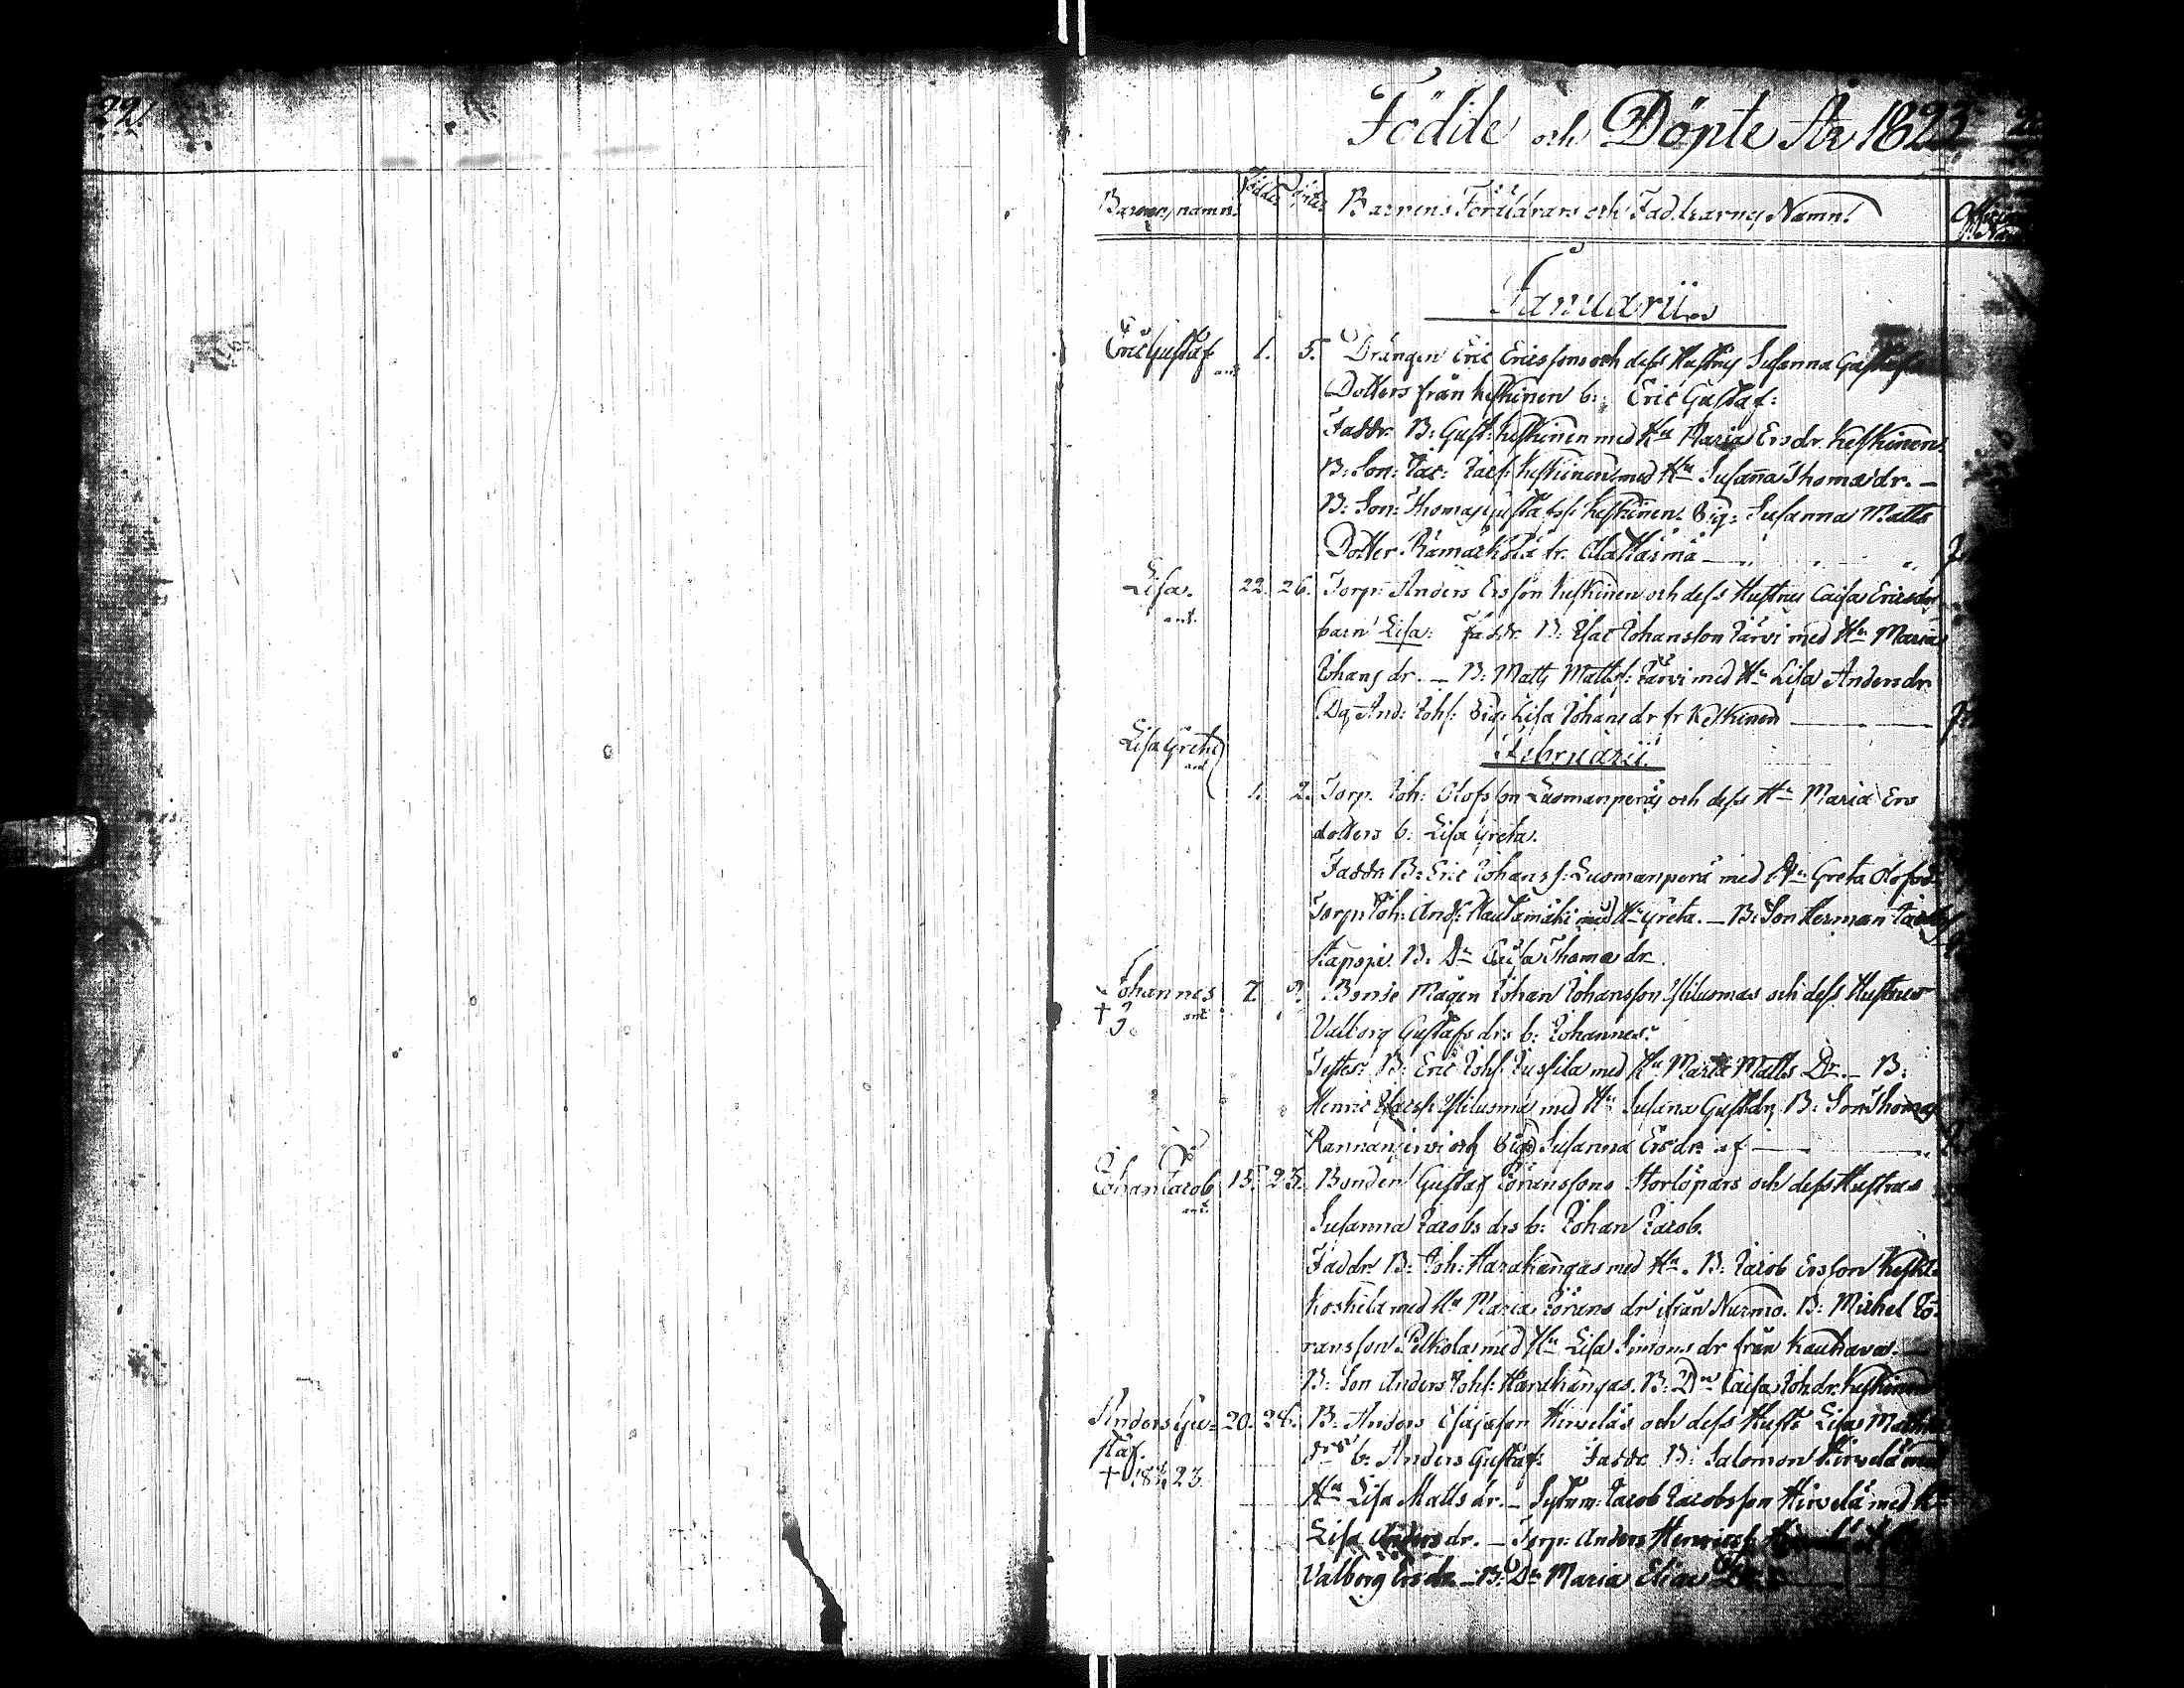 22.
Födde och Döpte År 1823
Barnens namn. Födde Döpte Barnens Föräldrars och Faddrarnes Namn.
Januarii
Eric Gustaf 1. 5. Drängen Eric Ericssons och dess Hustrus Susanna Gustafs
ant.
Dotters från Keskinen b: Eric Gustaf:
Faddr. B: Gust: Keskinen med Hu Maria Ersdr. Keskinen.
B: Son: Jac: Jacs: Keskinen med Hu Susanna Thomædr. –
B: Son: Thomas Gustafss: Keskinen. Pig: Susanna Matts
Dotter Rämäkölä fr. Ala Härmä
Lisa. 22. 26. Torp: Anders Ersson Keskinen och dess Hustrus Caisa Ericsdr
ant.
barn Lisa: Faddr. B: Isac Johansson Järvi med Hu Maria
Johans dr. – B: Matts Matts: Järvi med Hu Lisa Andersdr.
Dg And: Johs: Pig: Lisa Johans dr fr Keskinen
Lisa Greta
ant
Februarii
1. 2. Torp. Joh: Olofsson Luomanperäs och dess Hu Maria Ers
dotters b: Lisa Greta.
Faddr. B: Eric Johans s: Luomanperä med Hu Greta Olofsd
Torp: Joh: And: Hautamäki med Hu Greta. – B: Son Herman
B: Dr Caisa Thomædr.
Johannes 7. 9. Bonde Mågen Johan Johansson Yliluomas och dess Hustrus
ant
† 3.
Valborg Gustafs drs b: Johannes.
Testes: B: Eric Johs: Jussila med Hu Maria Matts Dr. – B:
Henric Isacss: Yliluoma med Hu Susana Gustdr, B: Son Thomas
Rannanjervi och Pig: Susanna Ersdr. af
Johan Jacob 15. 23. Bonden Gustaf Göranssons Storlöpars och dess Hustrus
ant.
Susanna Jacobs drs b: Johan Jacob.
Faddr. B: Joh: Harakangas med Hu. B: Jacob Ersson Keski-
koskila med Hu Maria Görans dr ifrån Nurmo. B: Michel Gö-
ransson Pelkolas med Hu Lisa Simons dr från Kauhava. –
B: Son Anders Johs: Harakangas. B: Dr Caisa Johdr. Keskinen
Anders Gu- 20. 28. B: Anders Esajsson Hirveläs och dess Hustr Lisa Matts
staf.
† 18 23.
drs b: Anders Gustaf: Faddr. B: Salomon Hirvelä med
Hu Lisa Matts dr. – Sytnm: Jacob Jacobsson Hirvelä med Hu
Lisa Anders dr. – Torp: Anders Henricss:
Valborg Ersdr – B: Dr Maria Eliæ Dr.